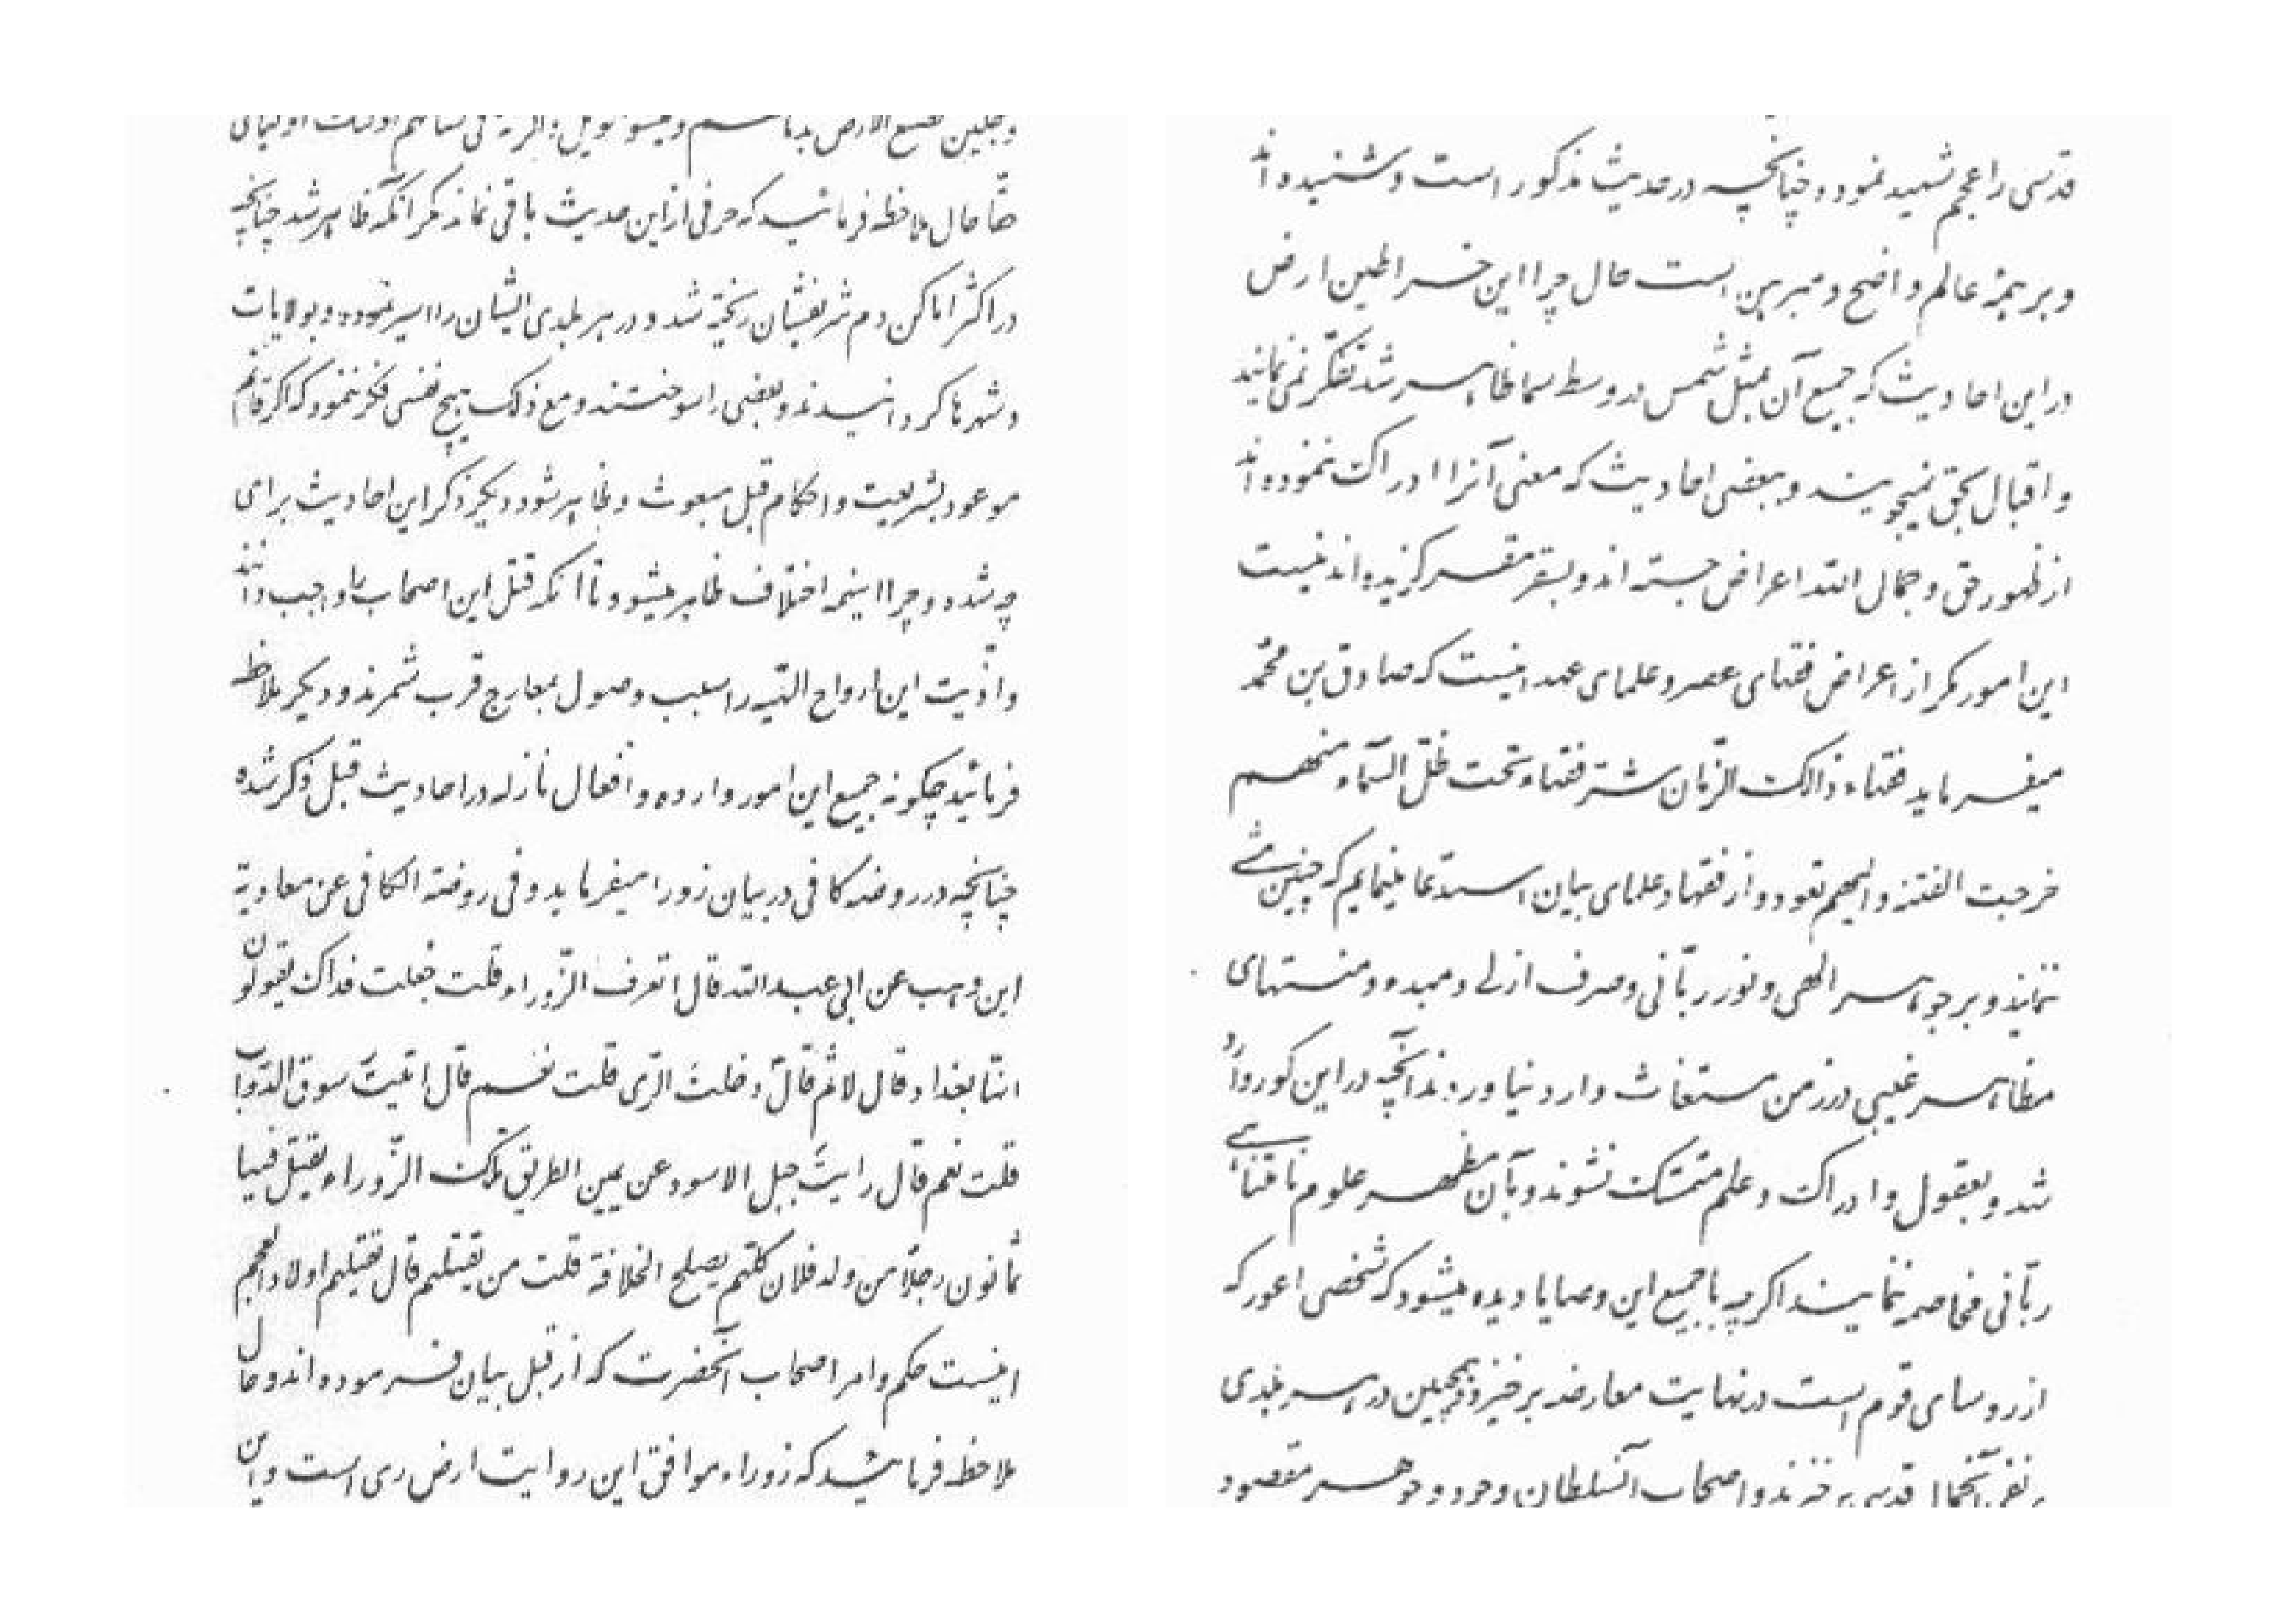 وجلین تصبغ الارض بدمائهم و یفشو الویل و الرنة فی نسائهم اولئک اولیائی
حقّا حال ملاحظه فرمائید که حرفی از این حدیث باقی نماند مگر آنکه ظاهر شد چنانچه
در اکثر اماکن دم شریفشان ریخته شد و در هر بلدی ایشان را اسیر نموده و بولایات
و شهرها گردانیدند و بعضی را سوختند و مع ذلک هیچ نفسی فکر ننمود که اگر قائم
موعود بشریعت و احکام قبل مبعوث و ظاهر شود دیگر ذکر این احادیث برای
چه شده و چرا اینهمه اختلاف ظاهر میشود تا آنکه قتل این اصحاب را واجب دانند
و اذّیت این ارواح الهیّه را سبب وصول بمعارج قرب شمرند و دیگر ملاحظه
فرمائید چگونه جمیع این امور وارده و افعال نازله در احادیث قبل ذکر شده
چنانچه در روضه کافی در بیان زورا میفرماید و فی روضة الکافی عن معاویة
ابن وهب عن ابی عبدالله قال اتعرف الزّوراء قلت جعلت فداک یقولون
انّها بغداد قال لا ثمّ قال دخلتَ الرّی قلت نعم قال اتیتَ سوق الدّوابّ
قلت نعم قال رایتَ جبل الاسود عن یمین الطریق تلک الزّوراء یقتل فیها
ثمانون رجلاً من ولد فلان کلّهم یصلح الخلافة قلت من یقتلهم قال یقتلهم اولاد العجم
اینست حکم و امر اصحاب آنحضرت که از قبل بیان فرموده‌اند و حال
ملاحظه فرمائید که زوراء موافق این روایت ارض ری است و این
قدسی را عجم شهید نموده چنانچه در حدیث مذکور است و شنیده‌اند
و بر همهٔ عالم واضح و مبرهن است حال چرا این خراطین ارض
در این احادیث که جمیع آن بمثل شمس در وسط سما ظاهر شد تفکّر نمی‌نمایند
و اقبال بحق نمیجویند و ببعضی احادیث که معنی آنرا ادراک ننموده‌اند
از ظهور حق و جمال الله اعراض جسته‌اند و بسقر مقر گزیده‌اند نیست
این امور مگر از اعراض فقهای عصر و علمای عهد اینست که صادق بن محمّد
میفرماید فقهاء ذالک الزّمان شرّ فقهاء تحت ظلّ السّماء منهم
خرجت الفتنه و الیهم تعود و از فقها و علمای بیان استدعا مینمایم که چنین مشی
ننمایند و بر جوهر الهی و نور ربّانی و صرف ازلی و مبدء و منتهای
مظاهر غیبی در زمن مستغاث وارد نیاورند آنچه در این کور وارد
شد و بعقول و ادراک و علم متمسّک نشوند و بآن مظهر علوم نامتناهی
ربّانی مخاصمه ننمایند اگرچه با جمیع این وصایا دیده میشود که شخصی اعور که
از رؤسای قوم است در نهایت معارضه برخیزد و همچنین در هر بلدی
بر نفی آنجمال قدسی برخیزند و اصحاب آنسلطان وجود و جوهر مقصود